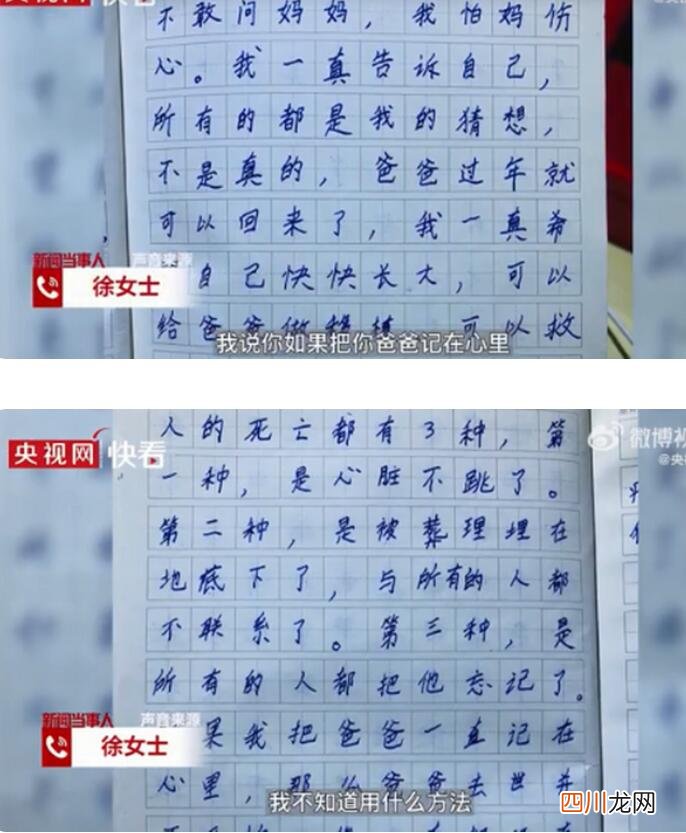 央视网 快看
不敢问妈妈，我怕妈伤
心。我一真告诉自己，
所有的都是我的猜想，
不是真的，爸爸过年就
可以回来了，我一真希
自己快快长大，可以
给爸爸做移植，可以救
新闻当事人
声音来源
徐女士
我说你如果把你爸爸记在心里
央视网 快看
微博视
@央
人的死亡都有3种，第
一种，是心脏不跳了。
第二种，是被葬理埋在
地底下了，与所有的人都
不联系了。第三种，是
所有的人都把他忘记了。
果我把爸爸一直记在
心里，那么爸爸去世并
新闻当事人
声音来源
徐女士
我不知道用什么方法
四川龙网